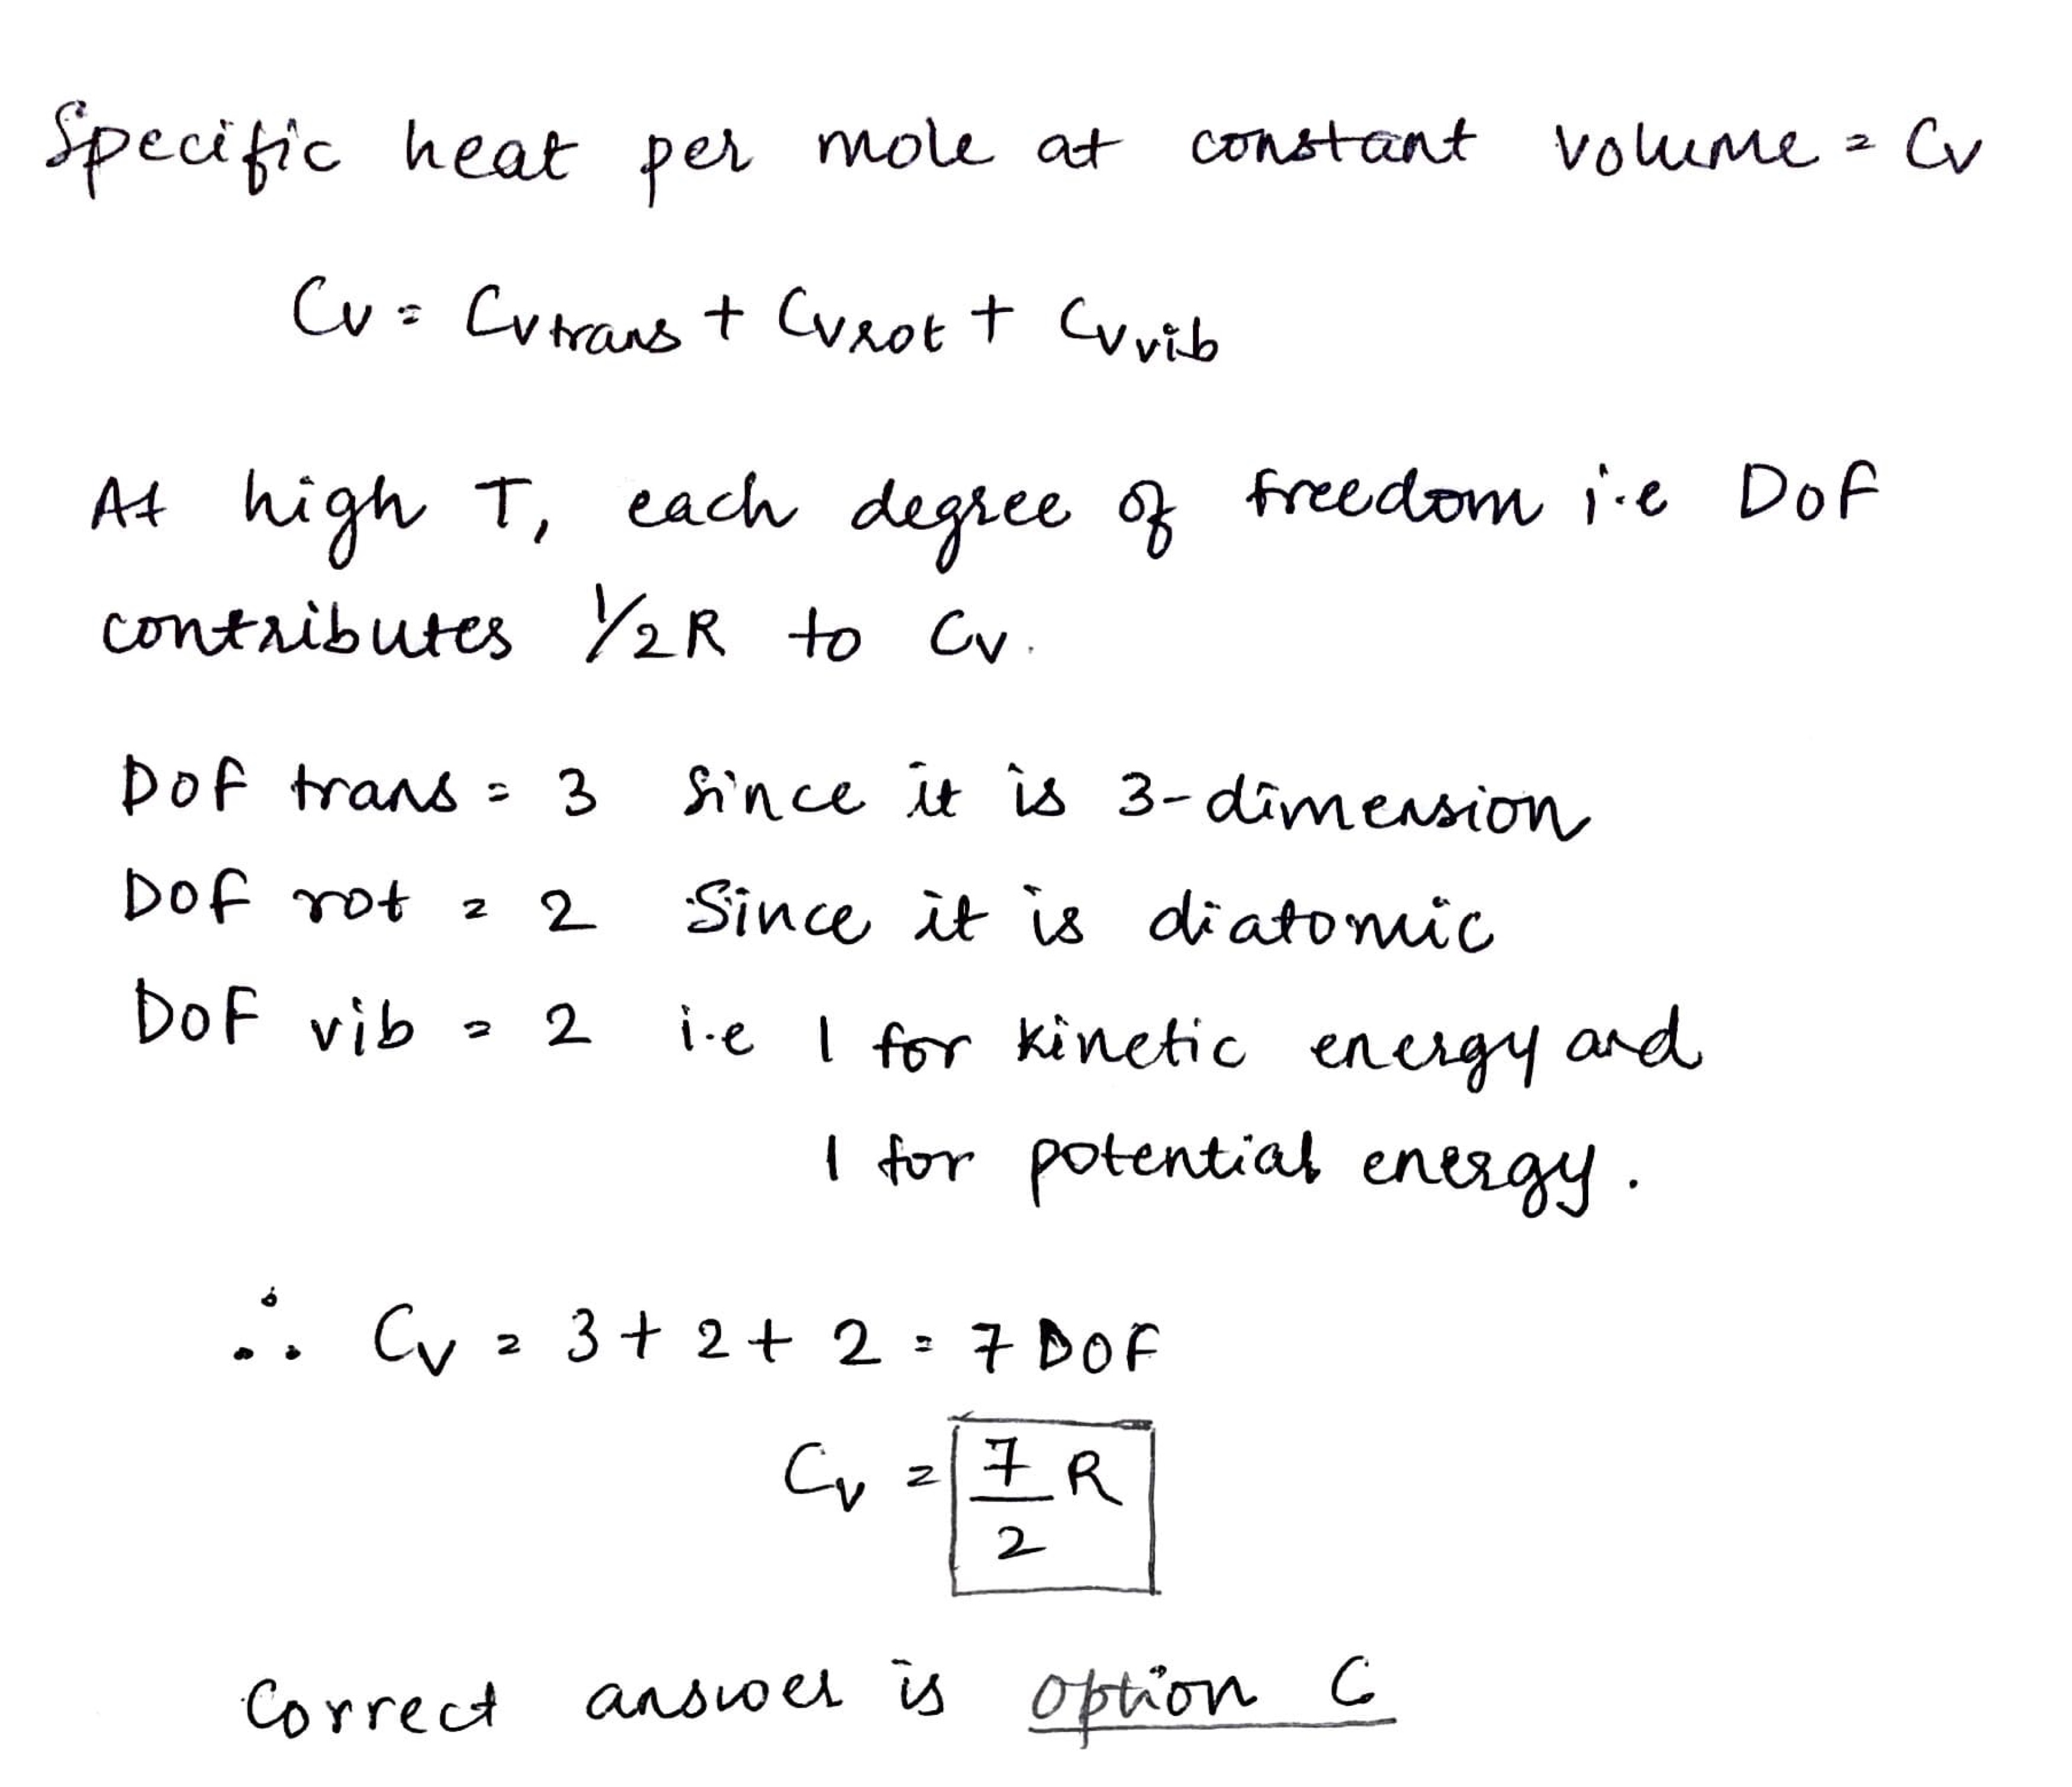 Specific heat per mole at constant volume = Cv
Cv = Cvtrans + Cvrot + Cvvib
At high T, each degree of freedom i.e DOF
contributes 1/2R to Cv.
DOF trans = 3 Since it is 3-dimension
DOF rot = 2 Since it is diatomic
DOF vib = 2 i.e 1 for kinetic energy and
1 for potential energy.
∴ Cv = 3 + 2 + 2 = 7 DOF
Cv = 7/2 R
Correct answer is option C